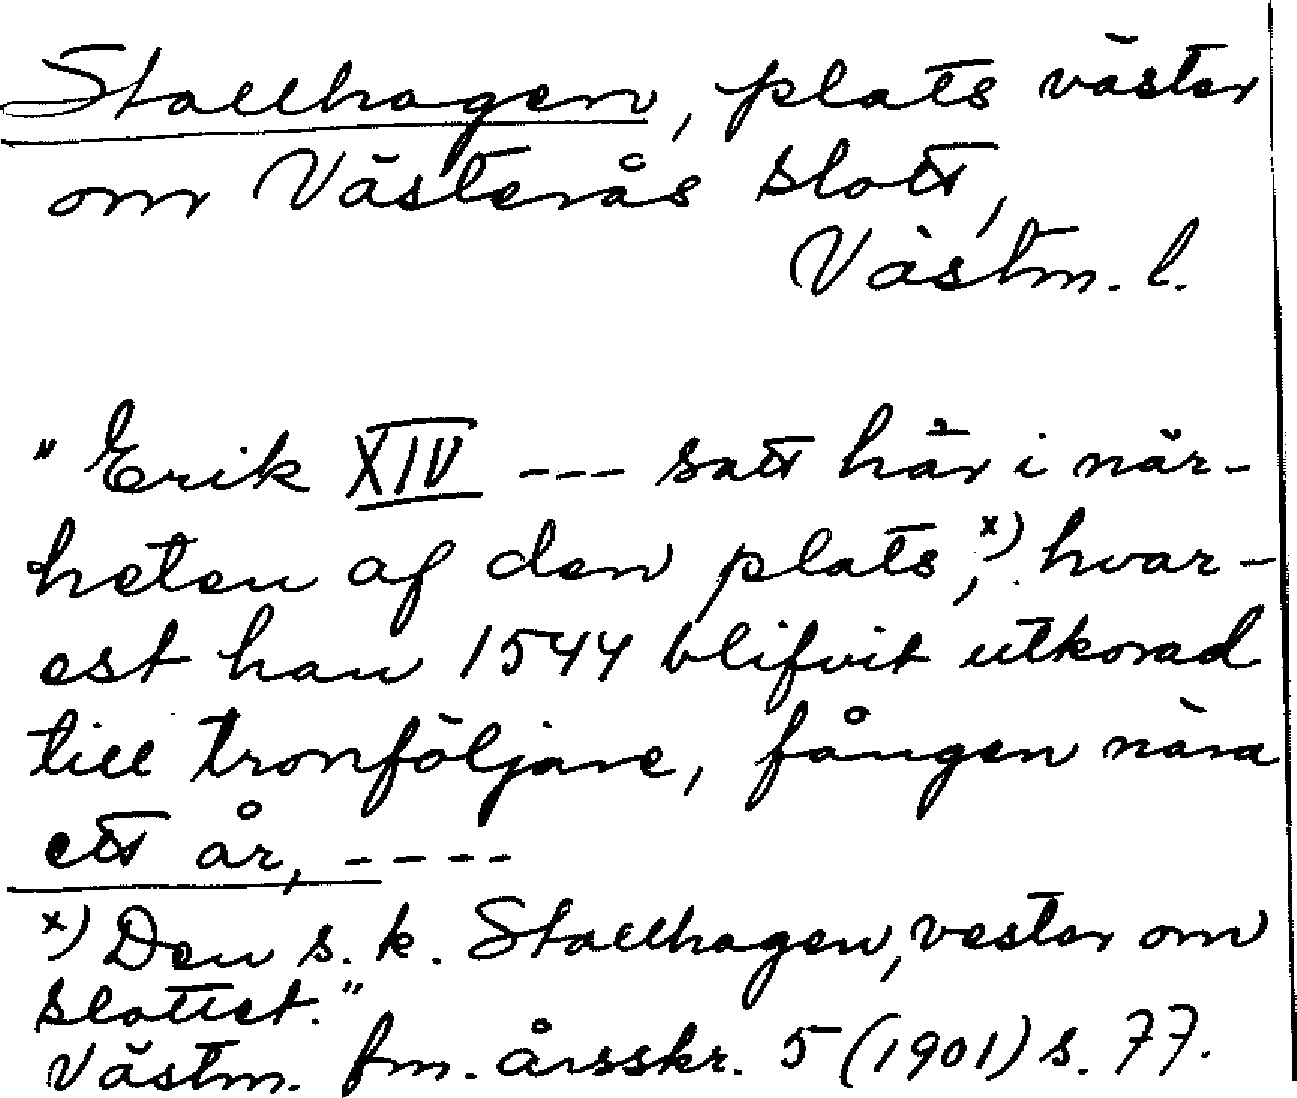 Stallhagen, plats väster
om Västerås slott,
Västm. l.
"Erik XIV --- satt här i när-
heten af den plats,x) hvar-
est han 1544 blifvit utkorad
till tronföljare, fången nära
ett år, ----
x) Den s. k. Stallhagen, vester om
slottet."
Västm. fm. årsskr. 5 (1901) s. 77.